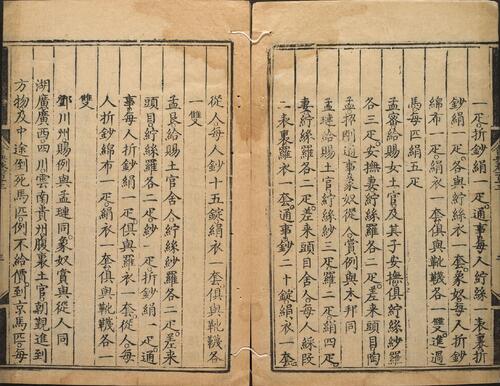 一疋折鈔絹一疋通事每人紵絲一表裏折
鈔絹一疋各與紵絲衣一套象奴每人折鈔
綿布一疋絹衣一套俱與靴韈各一雙進過
馬每一匹紵絲一疋
孟密給賜女土官及其子安撫俱紵絲紗羅
各三疋安撫妻紵絲羅各二疋差來頭目陶
孟招剛通事象奴從人賞例與木邦同
孟璉給賜土官紵絲紗三疋羅二疋絹四疋
妻紵絲羅各二疋差來頭目舍人每人綵段
二表裏羅衣一套通事鈔二十錠絹衣一套
從人每人鈔十五錠絹衣一套俱與靴韈各
一雙
孟艮給賜土官舍人紵絲紗羅各三疋差來
頭目紵絲羅各二疋紗一疋折鈔絹一疋通
事每人折鈔絹一疋俱與羅衣一套從人每
人折鈔綿布一疋絹衣一套俱與靴韈各一
雙
鄧川州賜例與孟璉同象奴賞與從人同
湖廣廣西四川雲南貴州腹裏土官朝覲進到
方物及中途倒死馬匹例不給價到京馬匹每